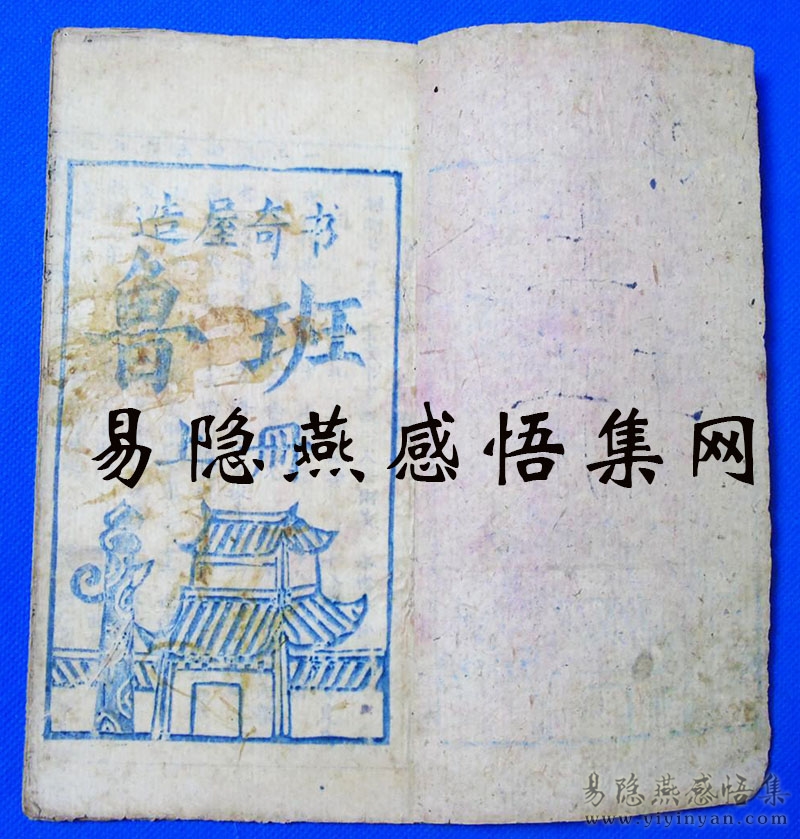 造屋奇书
鲁班
上册
易隐燕感悟集网
易隐燕感悟集
www.yiyinyan.com